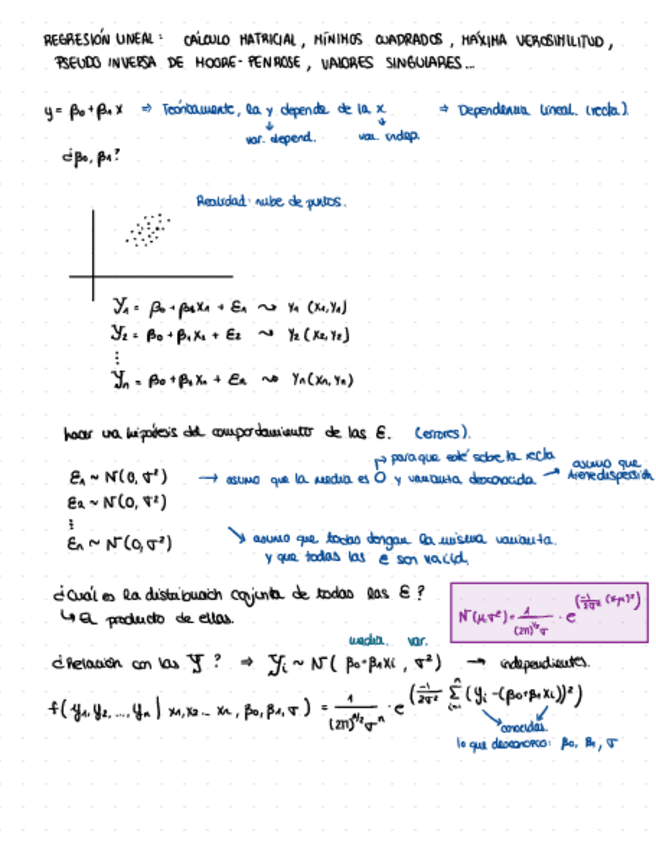 REGRESIÓN LINEAL: CÁLCULO MATRICIAL, MÍNIMOS CUADRADOS, MÁXIMA VEROSIMILITUD,
PSEUDO INVERSA DE MOORE-PENROSE, VALORES SINGULARES...
y = β₀ + β₁x ⇒ Teóricamente, la y depende de la x ⇒ Dependencia lineal (recta).
var. depend. var. indep.
¿β₀, β₁?
Realidad: nube de puntos.
Y₁ = β₀ + β₁x₁ + ε₁ ⇝ Y₁ (x₁, y₁)
Y₂ = β₀ + β₁x₂ + ε₂ ⇝ Y₂ (x₂, y₂)
⋮
Yₙ = β₀ + β₁xₙ + εₙ ⇝ Yₙ (xₙ, yₙ)
hacer una hipótesis del comportamiento de las ε. (errores).
para que esté sobre la recta
ε₁ ~ N(0, σ²) → asumo que la media es 0 y varianza desconocida → asumo que tiene dispersión
ε₂ ~ N(0, σ²)
⋮
εₙ ~ N(0, σ²) ↘ asumo que todas tengan la misma varianza
y que todas las ε son va.i.id.
¿Cuál es la distribución conjunta de todas las ε?
↳ El producto de ellas.
N(μ, σ²) = 1/((2π)^½ σ) · e^(-1/2σ² (x-μ)²)
media. var.
¿Relación con las Y? ⇒ Yᵢ ~ N(β₀+β₁xᵢ, σ²) → independientes.
f(y₁, y₂, ..., yₙ | x₁, x₂ ... xₙ, β₀, β₁, σ) = 1/((2π)^n/2 σⁿ) · e^(-1/2σ² Σᵢ₌₁ⁿ (yᵢ-(β₀+β₁xᵢ))²)
conocidas.
lo que desconozco: β₀, β₁, σ